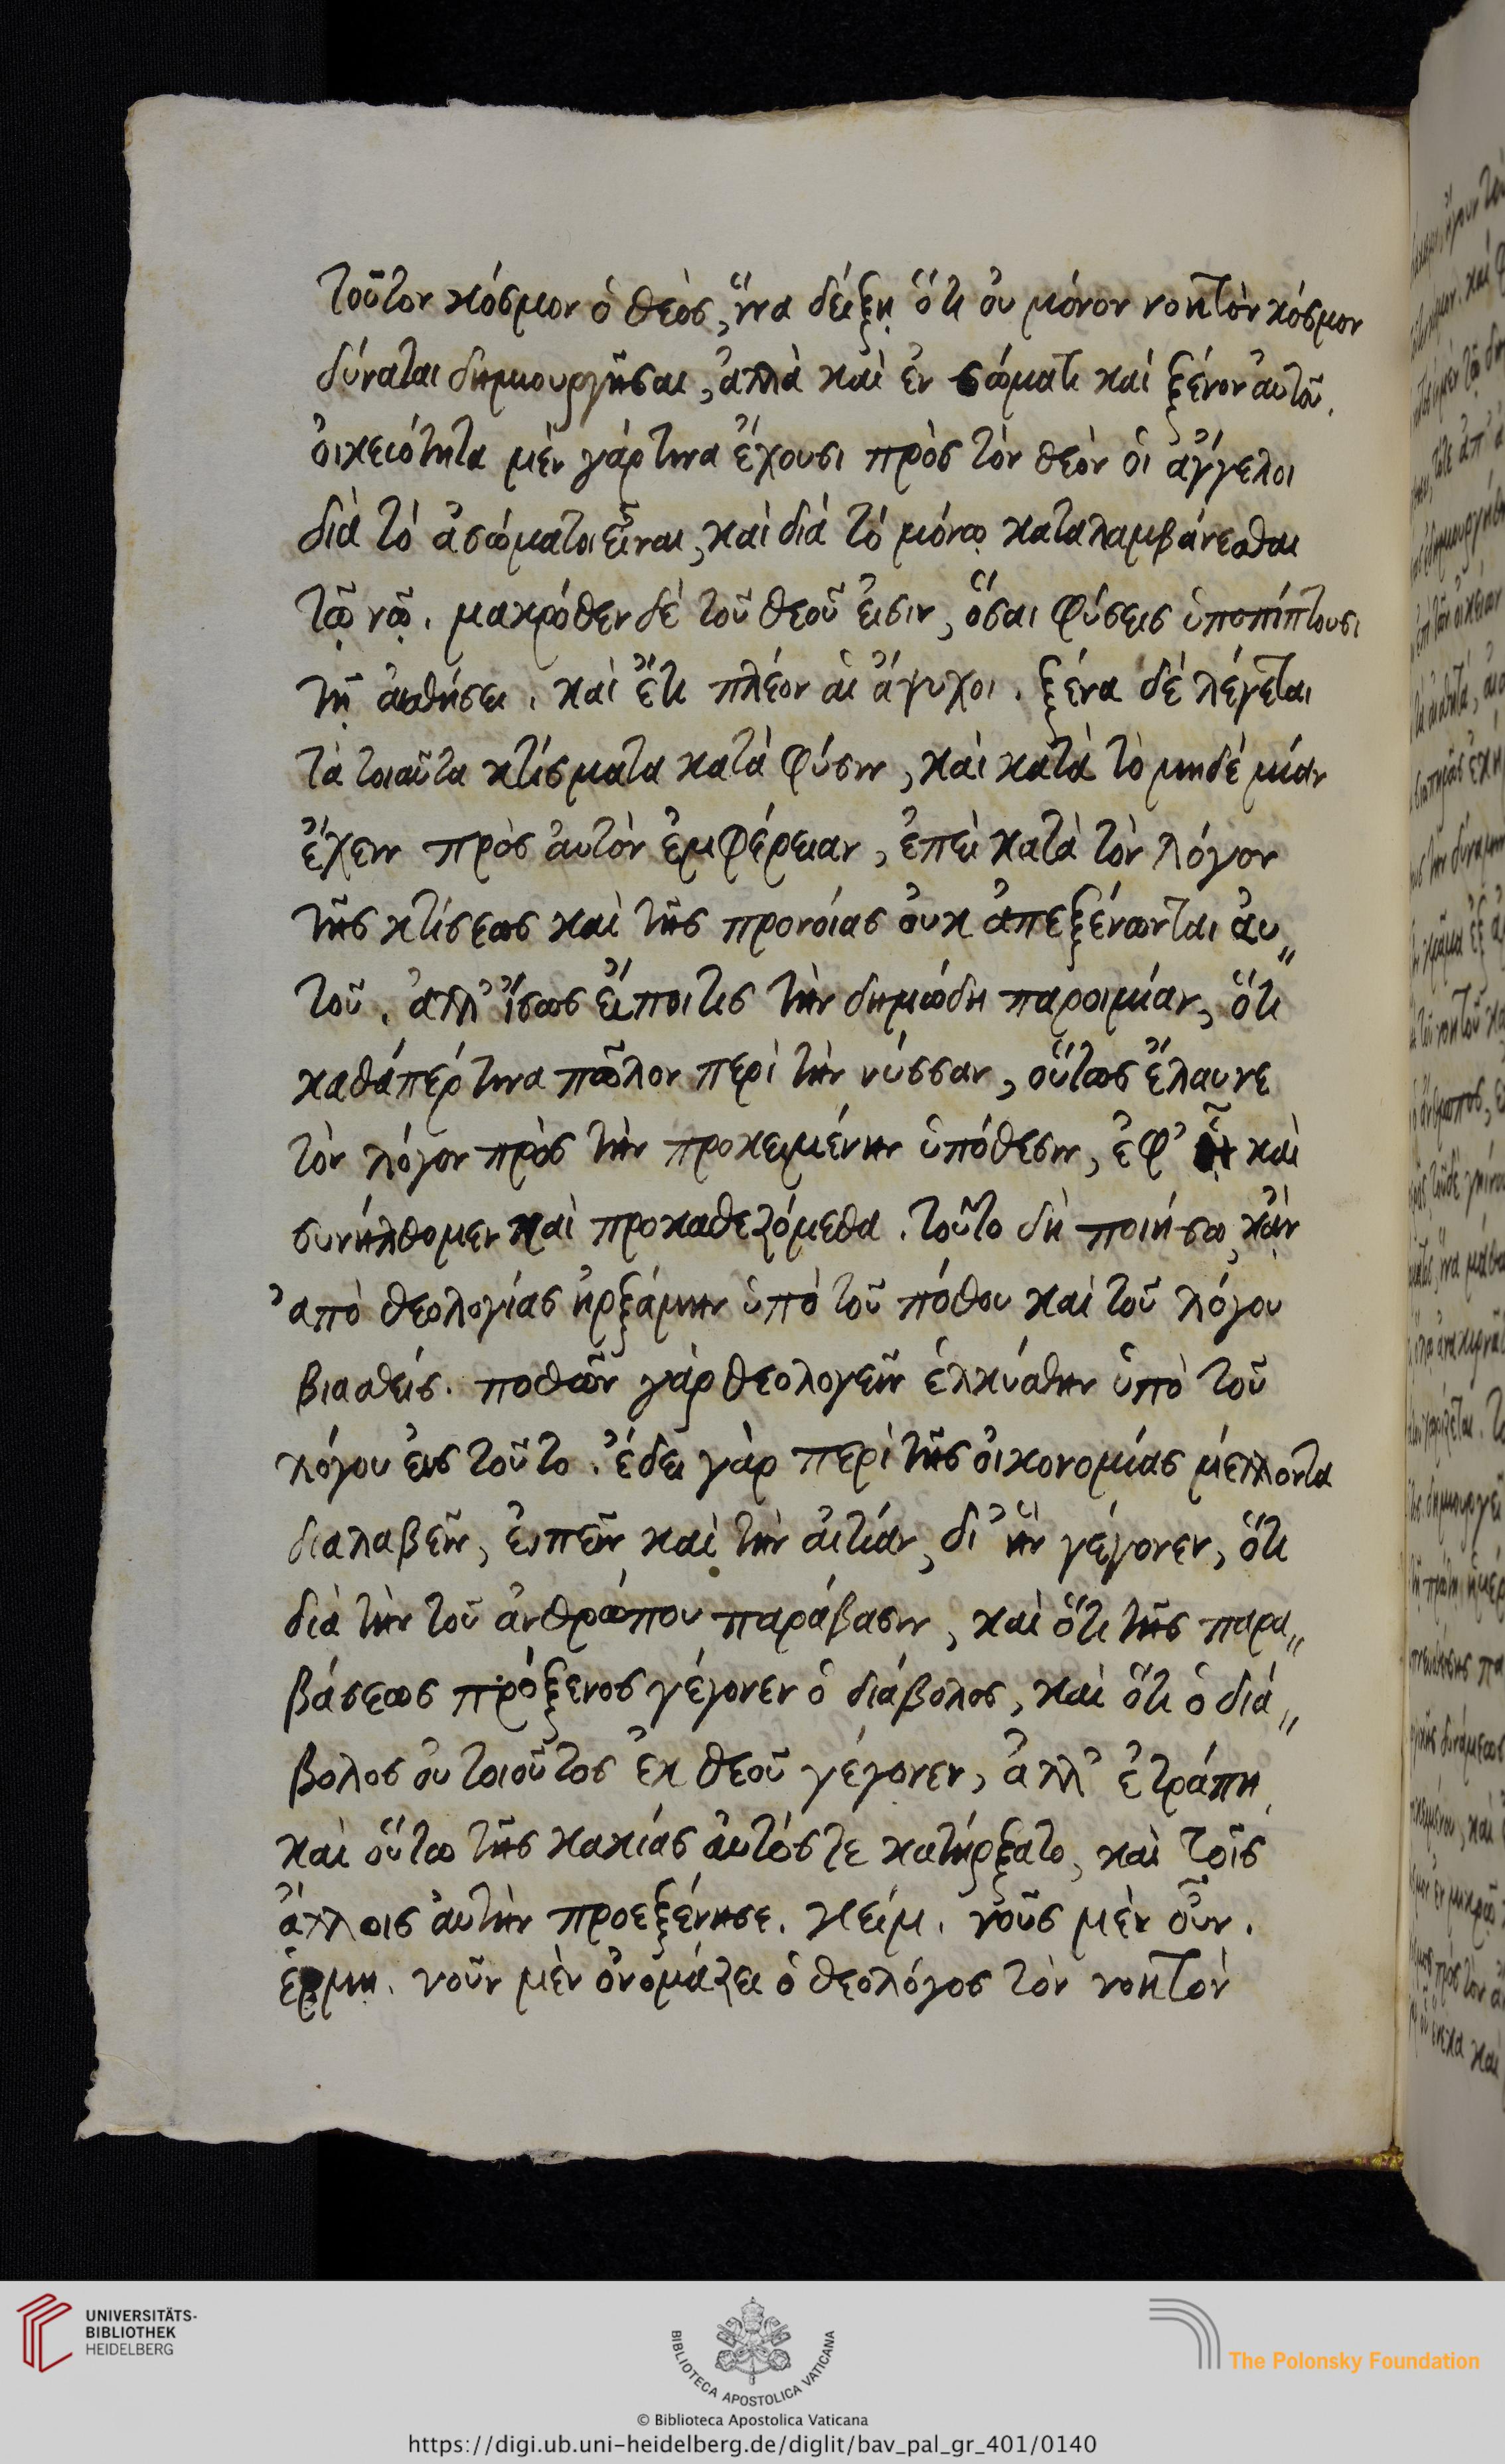 τοῦτον κόσμον ὁ θεὸς, ἵνα δείξῃ ὅτι οὐ μόνον νοητὸν κόσμον
δύναται δημιουργῆσαι, ἀλλὰ καὶ ἐν σώματι καὶ ξένον αὐτοῦ.
οἰκειότητα μὲν γάρ τινα ἔχουσι πρὸς τὸν θεὸν οἱ ἄγγελοι
διὰ τὸ ἀσώματοι εἶναι, καὶ διὰ τὸ μόνῳ καταλαμβάνεσθαι
τῷ νῷ. μακρόθεν δὲ τοῦ θεοῦ εἰσιν, ὅσαι φύσεις ὑποπίπτουσι
τῇ αἰσθήσει. καὶ ἔτι πλέον αἱ ἄψυχοι. ξένα δὲ λέγεται
τὰ τοιαῦτα κτίσματα κατὰ φύσιν, καὶ κατὰ τὸ μηδὲ μίαν
ἔχειν πρὸς αὐτὸν ἐμφέρειαν, ἐπεὶ κατὰ τὸν λόγον
τῆς κτίσεως καὶ τῆς προνοίας οὐκ ἀπεξένωνται αὐ〃
τοῦ. ἀλλ' ἴσως εἴποι τις τὴν δημώδη παροιμίαν, ὅτι
καθάπέρ τινα πῶλον περὶ τὴν νύσσαν, οὕτως ἔλαυνε
τὸν λόγον πρὸς τὴν προκειμένην ὑπόθεσιν, ἐφ' ᾗ καὶ
συνήλθομεν καὶ προκαθεζόμεθα. τοῦτο δὴ ποιήσω, κἂν
ἀπὸ θεολογίας ἠρξάμην ὑπὸ τοῦ πόθου καὶ τοῦ λόγου
βιασθείς. ποθῶν γὰρ θεολογεῖν ἑλκύσθην ὑπὸ τοῦ
λόγου εἰς τοῦτο. ἔδει γὰρ περὶ τῆς οἰκονομίας μέλλοντα
διαλαβεῖν, εἰπεῖν καὶ τὴν αἰτίαν, δι' ἣν γέγονεν, ὅτι
διὰ τὴν τοῦ ἀνθρώπου παράβασιν, καὶ ὅτι τῆς παρα〃
βάσεως πρόξενος γέγονεν ὁ διάβολος, καὶ ὅτι ὁ διά〃
βολος οὐ τοιοῦτος ἐκ θεοῦ γέγονεν, ἀλλ' ἐτράπη,
καὶ οὕτω τῆς κακίας αὐτός τε κατήρξατο, καὶ τοῖς
ἄλλοις αὐτὴν προεξένησε. κείμ. νοῦς μὲν οὖν.
ἑρμη. νοῦν μὲν ὀνομάζει ὁ θεολόγος τὸν νοητὸν
UNIVERSITÄTS-
BIBLIOTHEK
HEIDELBERG
BIBLIOTECA APOSTOLICA VATICANA
The Polonsky Foundation
© Biblioteca Apostolica Vaticana
https://digi.ub.uni-heidelberg.de/diglit/bav_pal_gr_401/0140